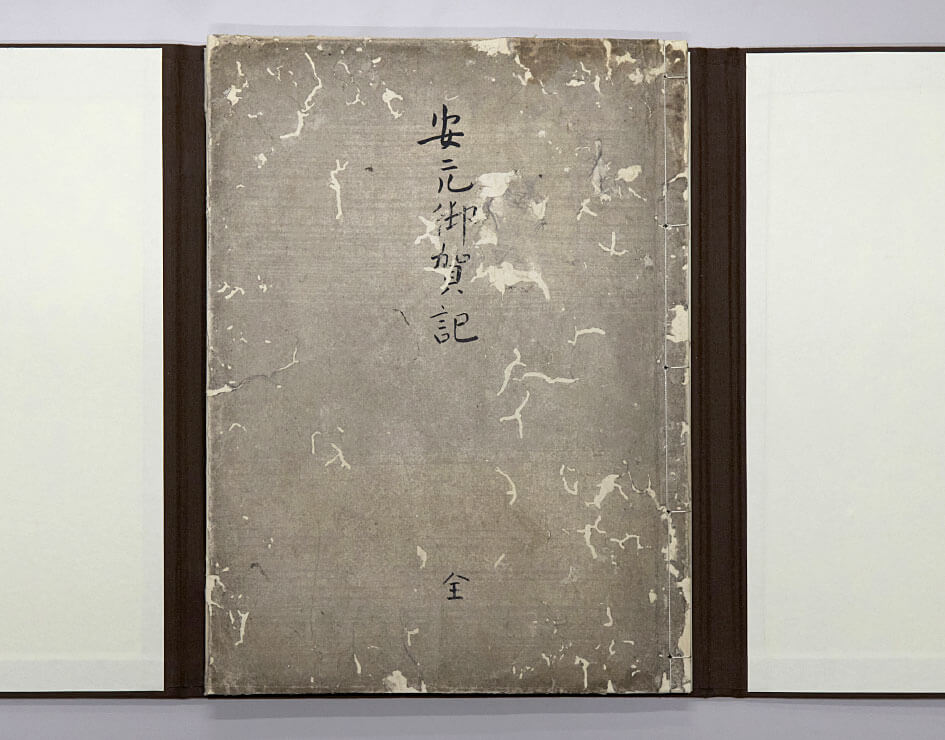 安元御賀記
全